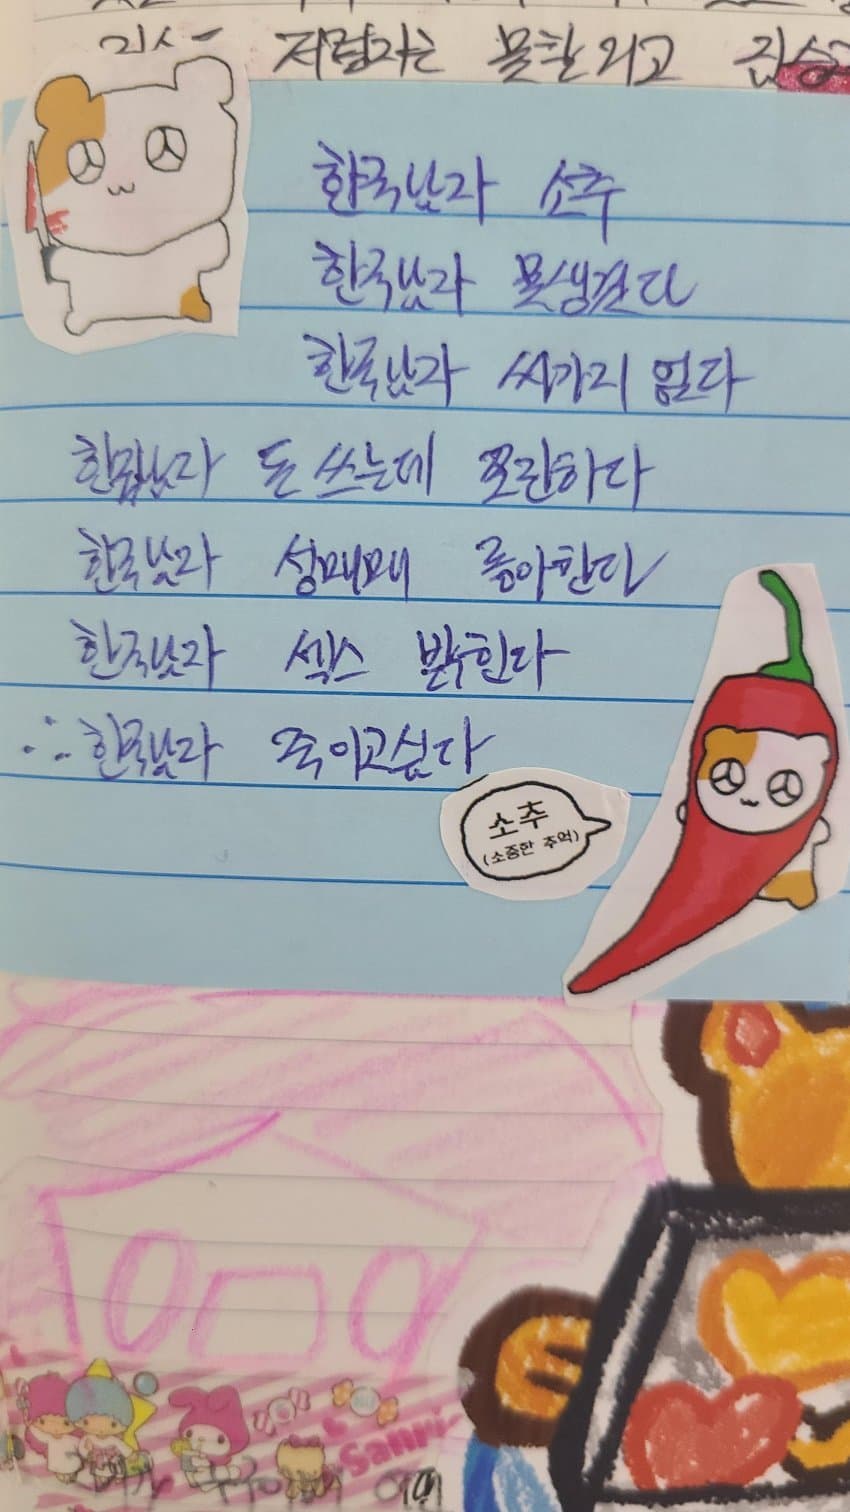 저럼자는 못할 외고
한국남자 소추
한국남자 못생겼다
한국남자 싸가지 없다
한국남자 돈 쓰는데 쪼잔하다
한국남자 성매매 좋아한다
한국남자 섹스 밝힌다
∴ 한국남자 죽이고싶다
소추
(소중한 추억)
Sanri